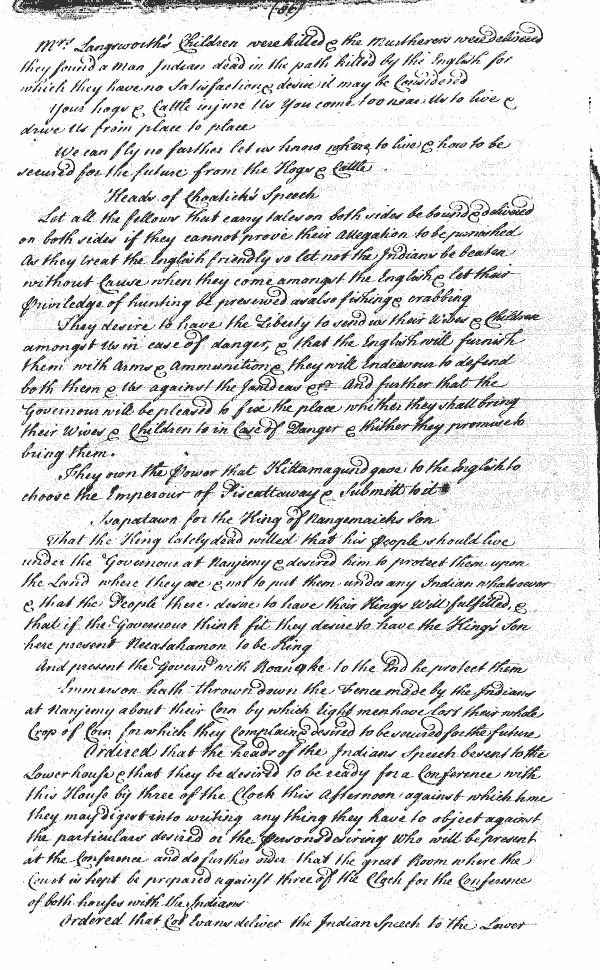 (86)
Mrs Langsworth's Children were killed & the Murtherers were delivered
they found a Man Indian dead in the path killed by the English for
which they have no Satisfaction & desire it may be Considered
Your hogs & Cattle injure Us You come too near Us to live &
drive Us from place to place
We can fly no farther let us know where to live & how to be
secured for the future from the Hogs & Cattle
Heads of Choatick's Speech
Let all the fellows that carry tales on both sides be bound & delivered
on both sides if they cannot prove their Allegation to be punished
As they treat the English friendly so let not the Indians be beaten
without Cause when they come amongst the English & let their
Priviledge of hunting be preserved as also fishing & crabbing
They desire to have the Liberty to send us their Wives & Children
amongst Us in case of danger, & that the English will furnish
them with Arms & Ammunition & they will Endeavour to defend
both them & Us against the Jandoas &c. And further that the
Governour will be pleased to fix the place whither they shall bring
their Wives & Children to in Case of Danger & thither they promise to
bring them.
They own the Power that Kittamagund gave to the English to
choose the Emperour of Piscattaway & Submitt to it
Isapatawn for the King of Nangemaicks Son
That the King lately dead willed that his People should live
under the Governour at Nanjemy & desired him to protect them upon
the Land where they are & not to put them under any Indian whatsoever
& that the People there desire to have their Kings Will fulfilled, &
that if the Governour think fit they desire to have the King's Son
here present Necatahamon to be King
And present the Govern.r with Roanoke to the End he protect them
Emmerson hath thrown down the Fence made by the Indians
at Nanjemy about their Corn by which Eight men have lost their whole
Crop of Corn for which they Complain & desired to be secured for the future
Ordered that the heads of the Indians Speech be sent to the
Lower house & that they be desired to be ready for a Conference with
this House by three of the Clock this Afternoon against which time
they may digest into writing any thing they have to object against
the particulars desired or the Persons desiring Who will be present
at the Conference and do further order that the great Room where the
Court is kept be prepared against three of the Clock for the Conference
of both houses with the Indians
Ordered that Col Evans deliver the Indian Speech to the Lower